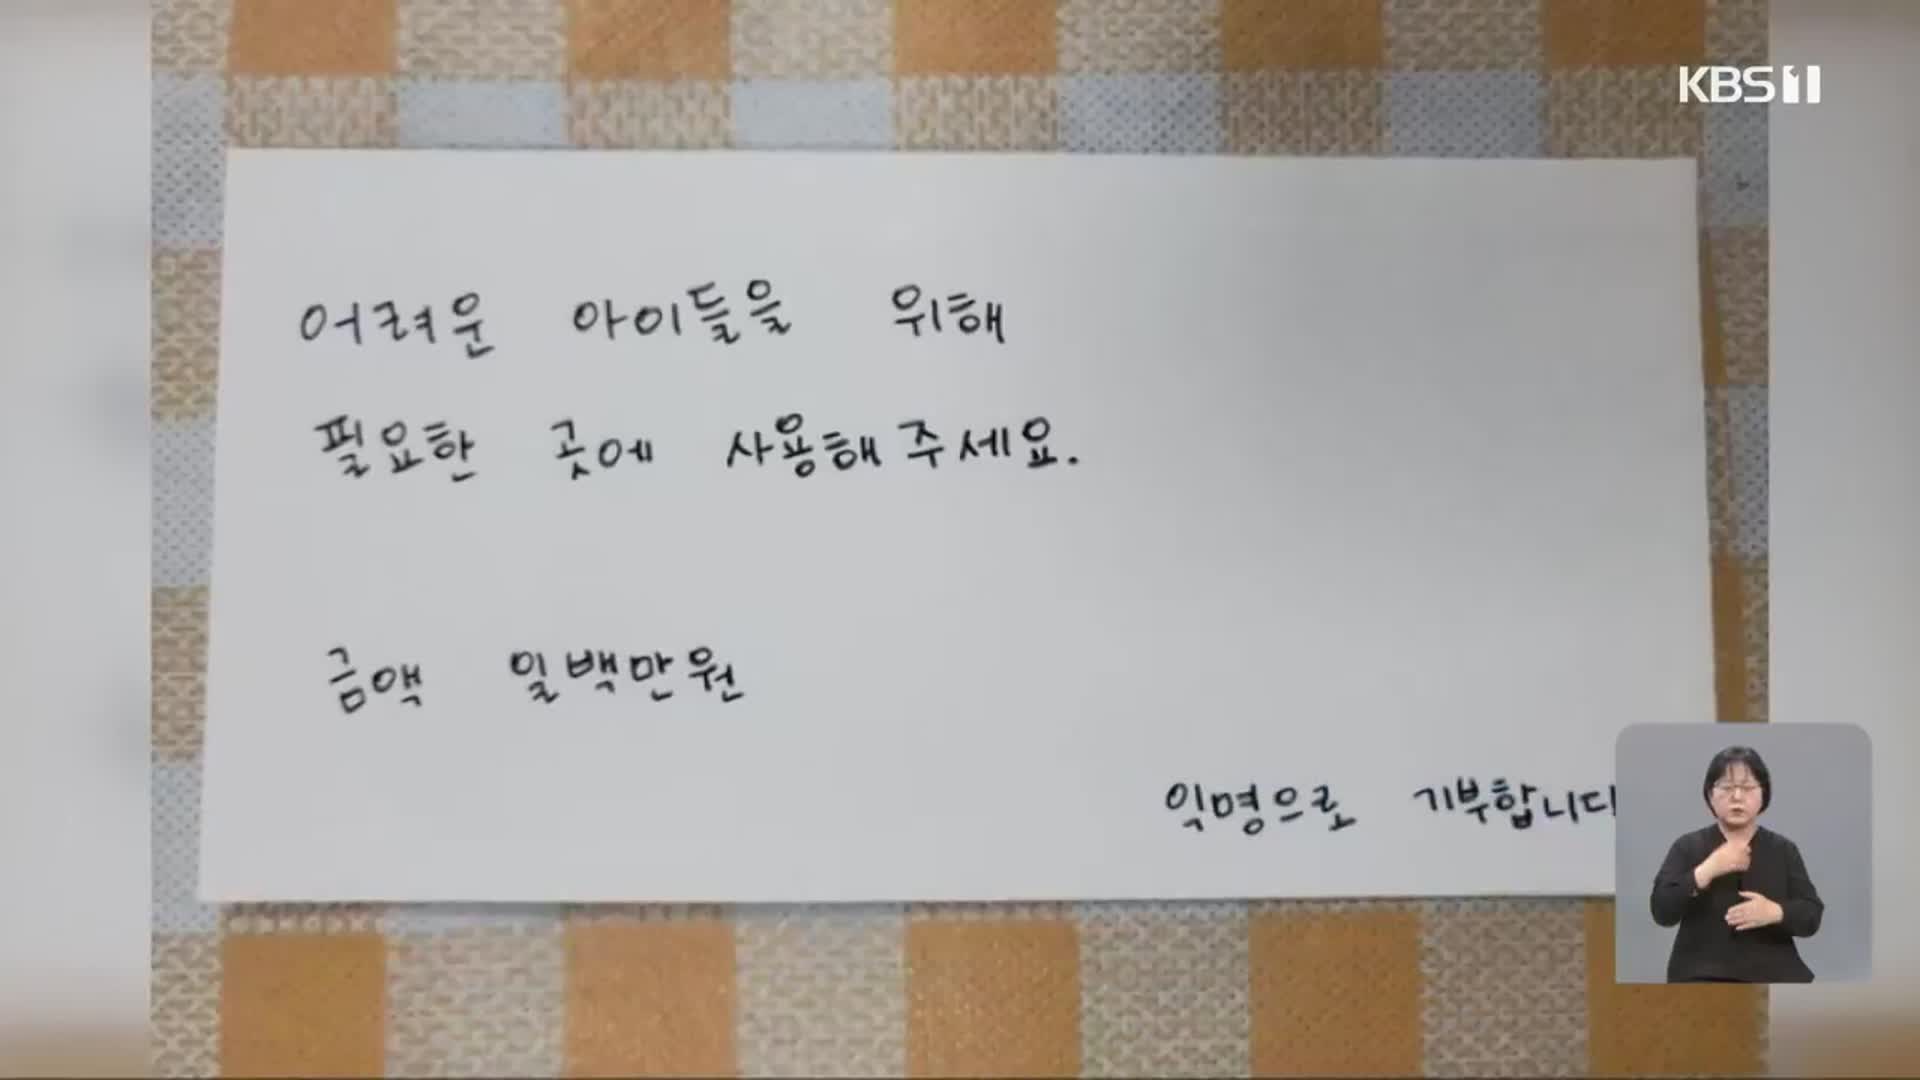 KBS 1
어려운 아이들을 위해
필요한 곳에 사용해 주세요.
금액 일백만원
익명으로 기부합니다